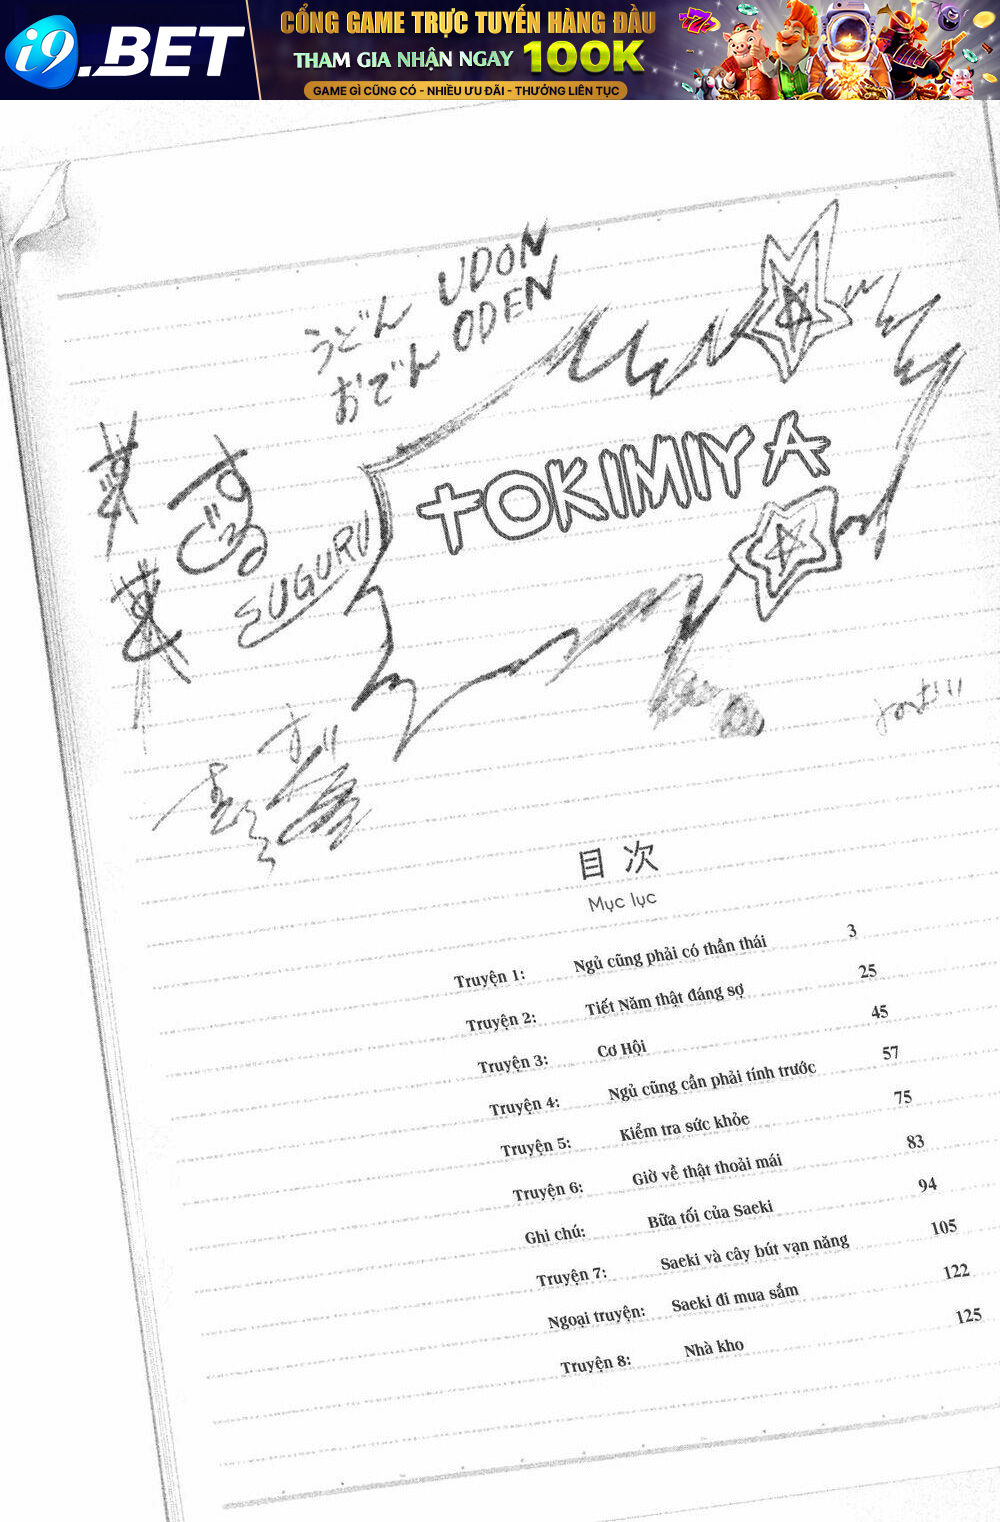 i9.BET
CỔNG GAME TRỰC TUYẾN HÀNG ĐẦU
THAM GIA NHẬN NGAY 100K
GAME GÌ CŨNG CÓ - NHIỀU ƯU ĐÃI - THƯỞNG LIÊN TỤC
うどん UDON
おでん ODEN
TOKIMIYA
すぐる
SUGURU
目次
Mục lục
Truyện 1: Ngủ cũng phải có thần thái 3
Truyện 2: Tiết Năm thật đáng sợ 25
Truyện 3: Cơ Hội 45
Truyện 4: Ngủ cũng cần phải tính trước 57
Truyện 5: Kiểm tra sức khỏe 75
Truyện 6: Giờ về thật thoải mái 83
Ghi chú: Bữa tối của Saeki 94
Truyện 7: Saeki và cây bút vạn năng 105
Ngoại truyện: Saeki đi mua sắm 122
Truyện 8: Nhà kho 125